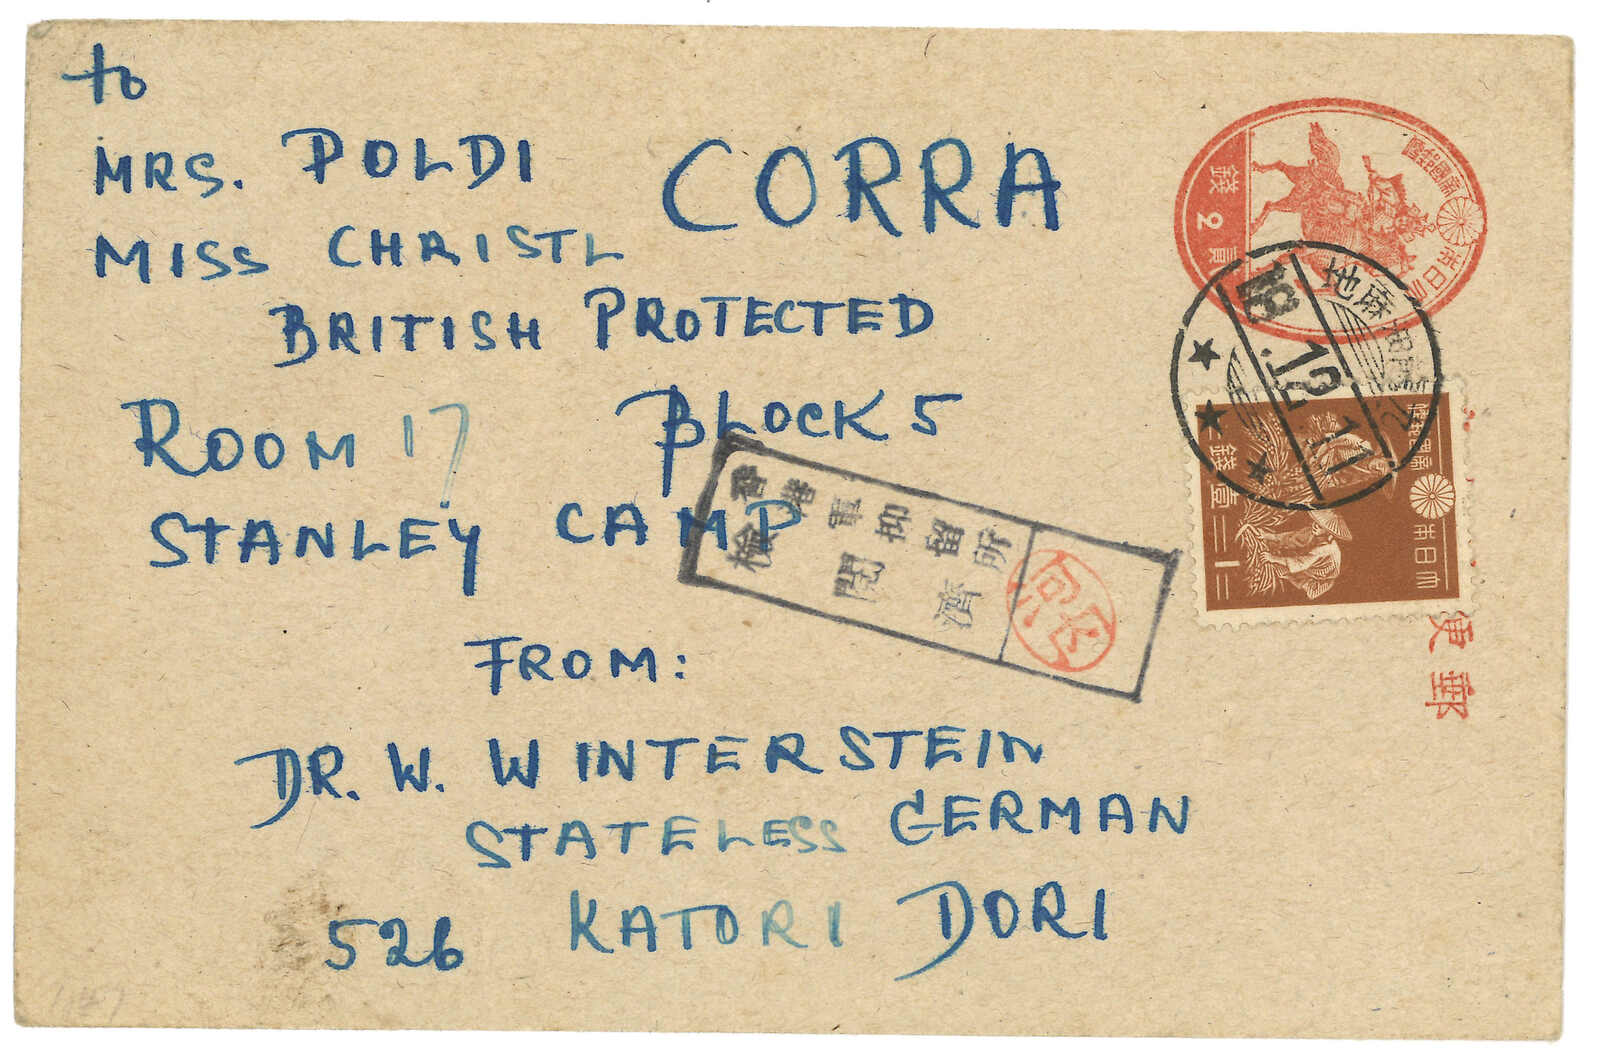 to
MRS. POLDI CORRA
MISS CHRISTL
BRITISH PROTECTED
ROOM 17 BLOCK 5
STANLEY CAMP
FROM:
DR. W. WINTERSTEIN
STATELESS GERMAN
526 KATORI DORI
香港軍抑留所
檢閲濟
錢 2
18.12.11
壹錢
郵便